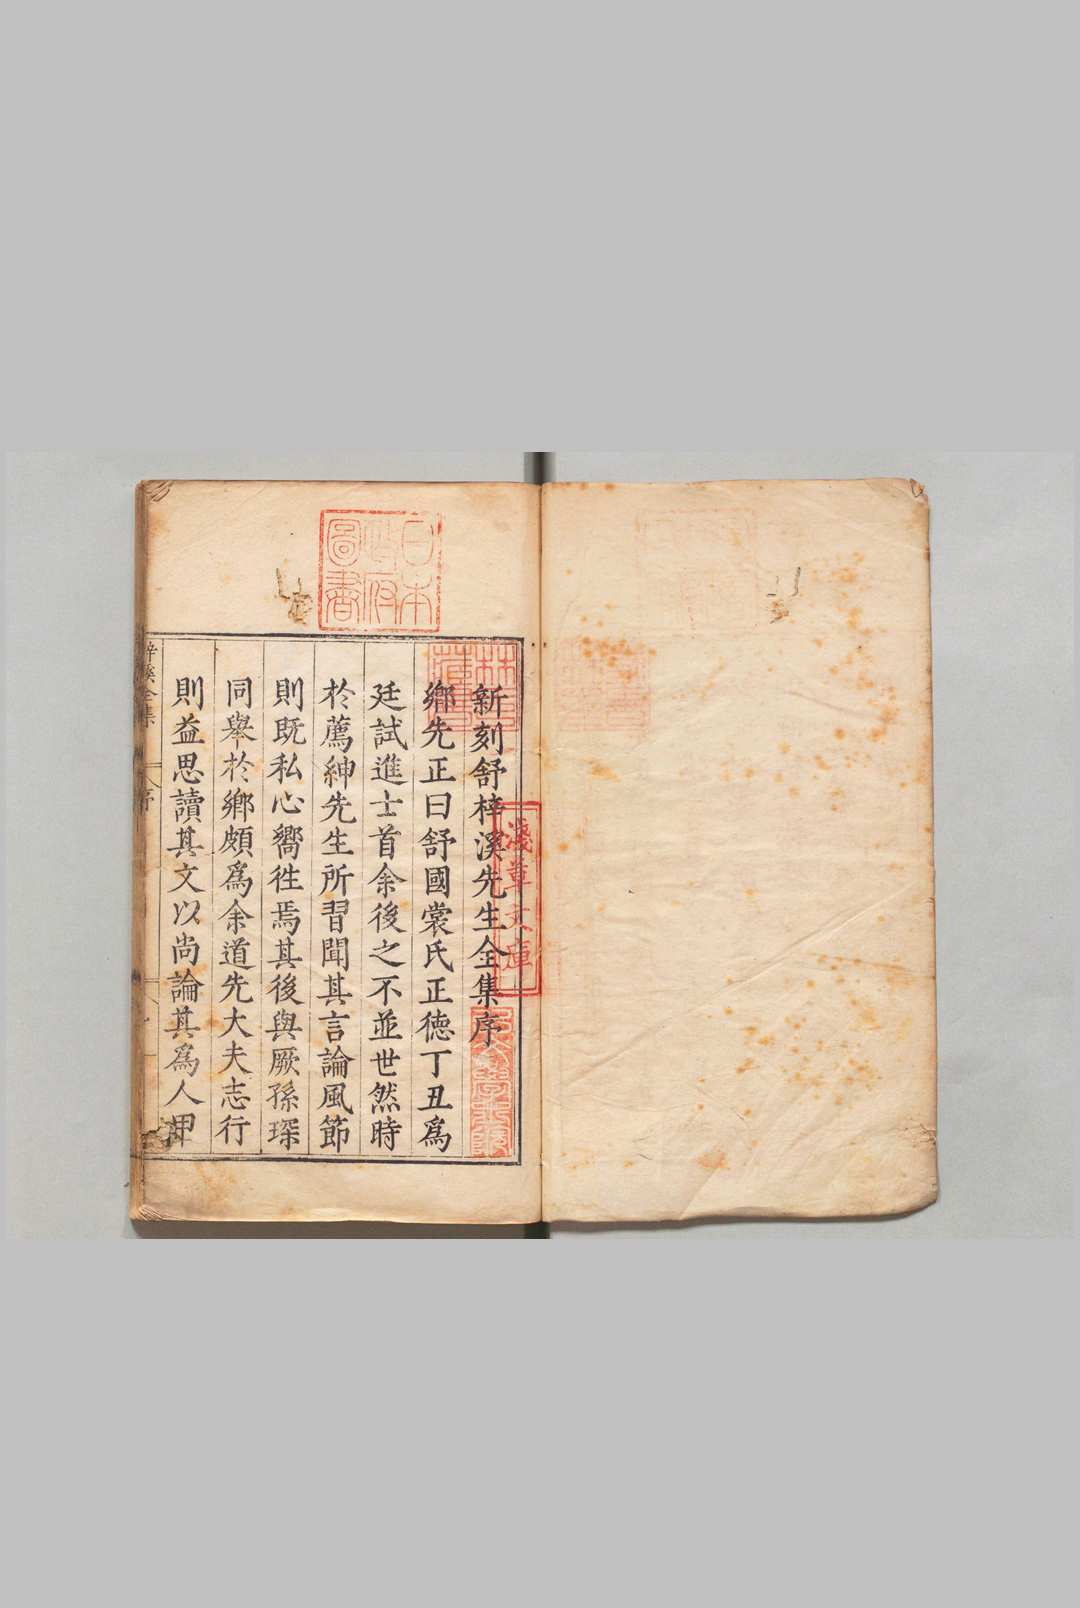 新刻舒梓溪先生全集序
鄉先正曰舒國裳氏正德丁丑爲
廷試進士首余後之不並世然時
於薦紳先生所習聞其言論風節
則既私心嚮徃焉其後與厥孫琛
同舉於鄉頗爲余道先大夫志行
則益思讀其文以尚論其爲人
梓溪全集
序
日本
政府
圖書
林氏
藏書
淺草文庫